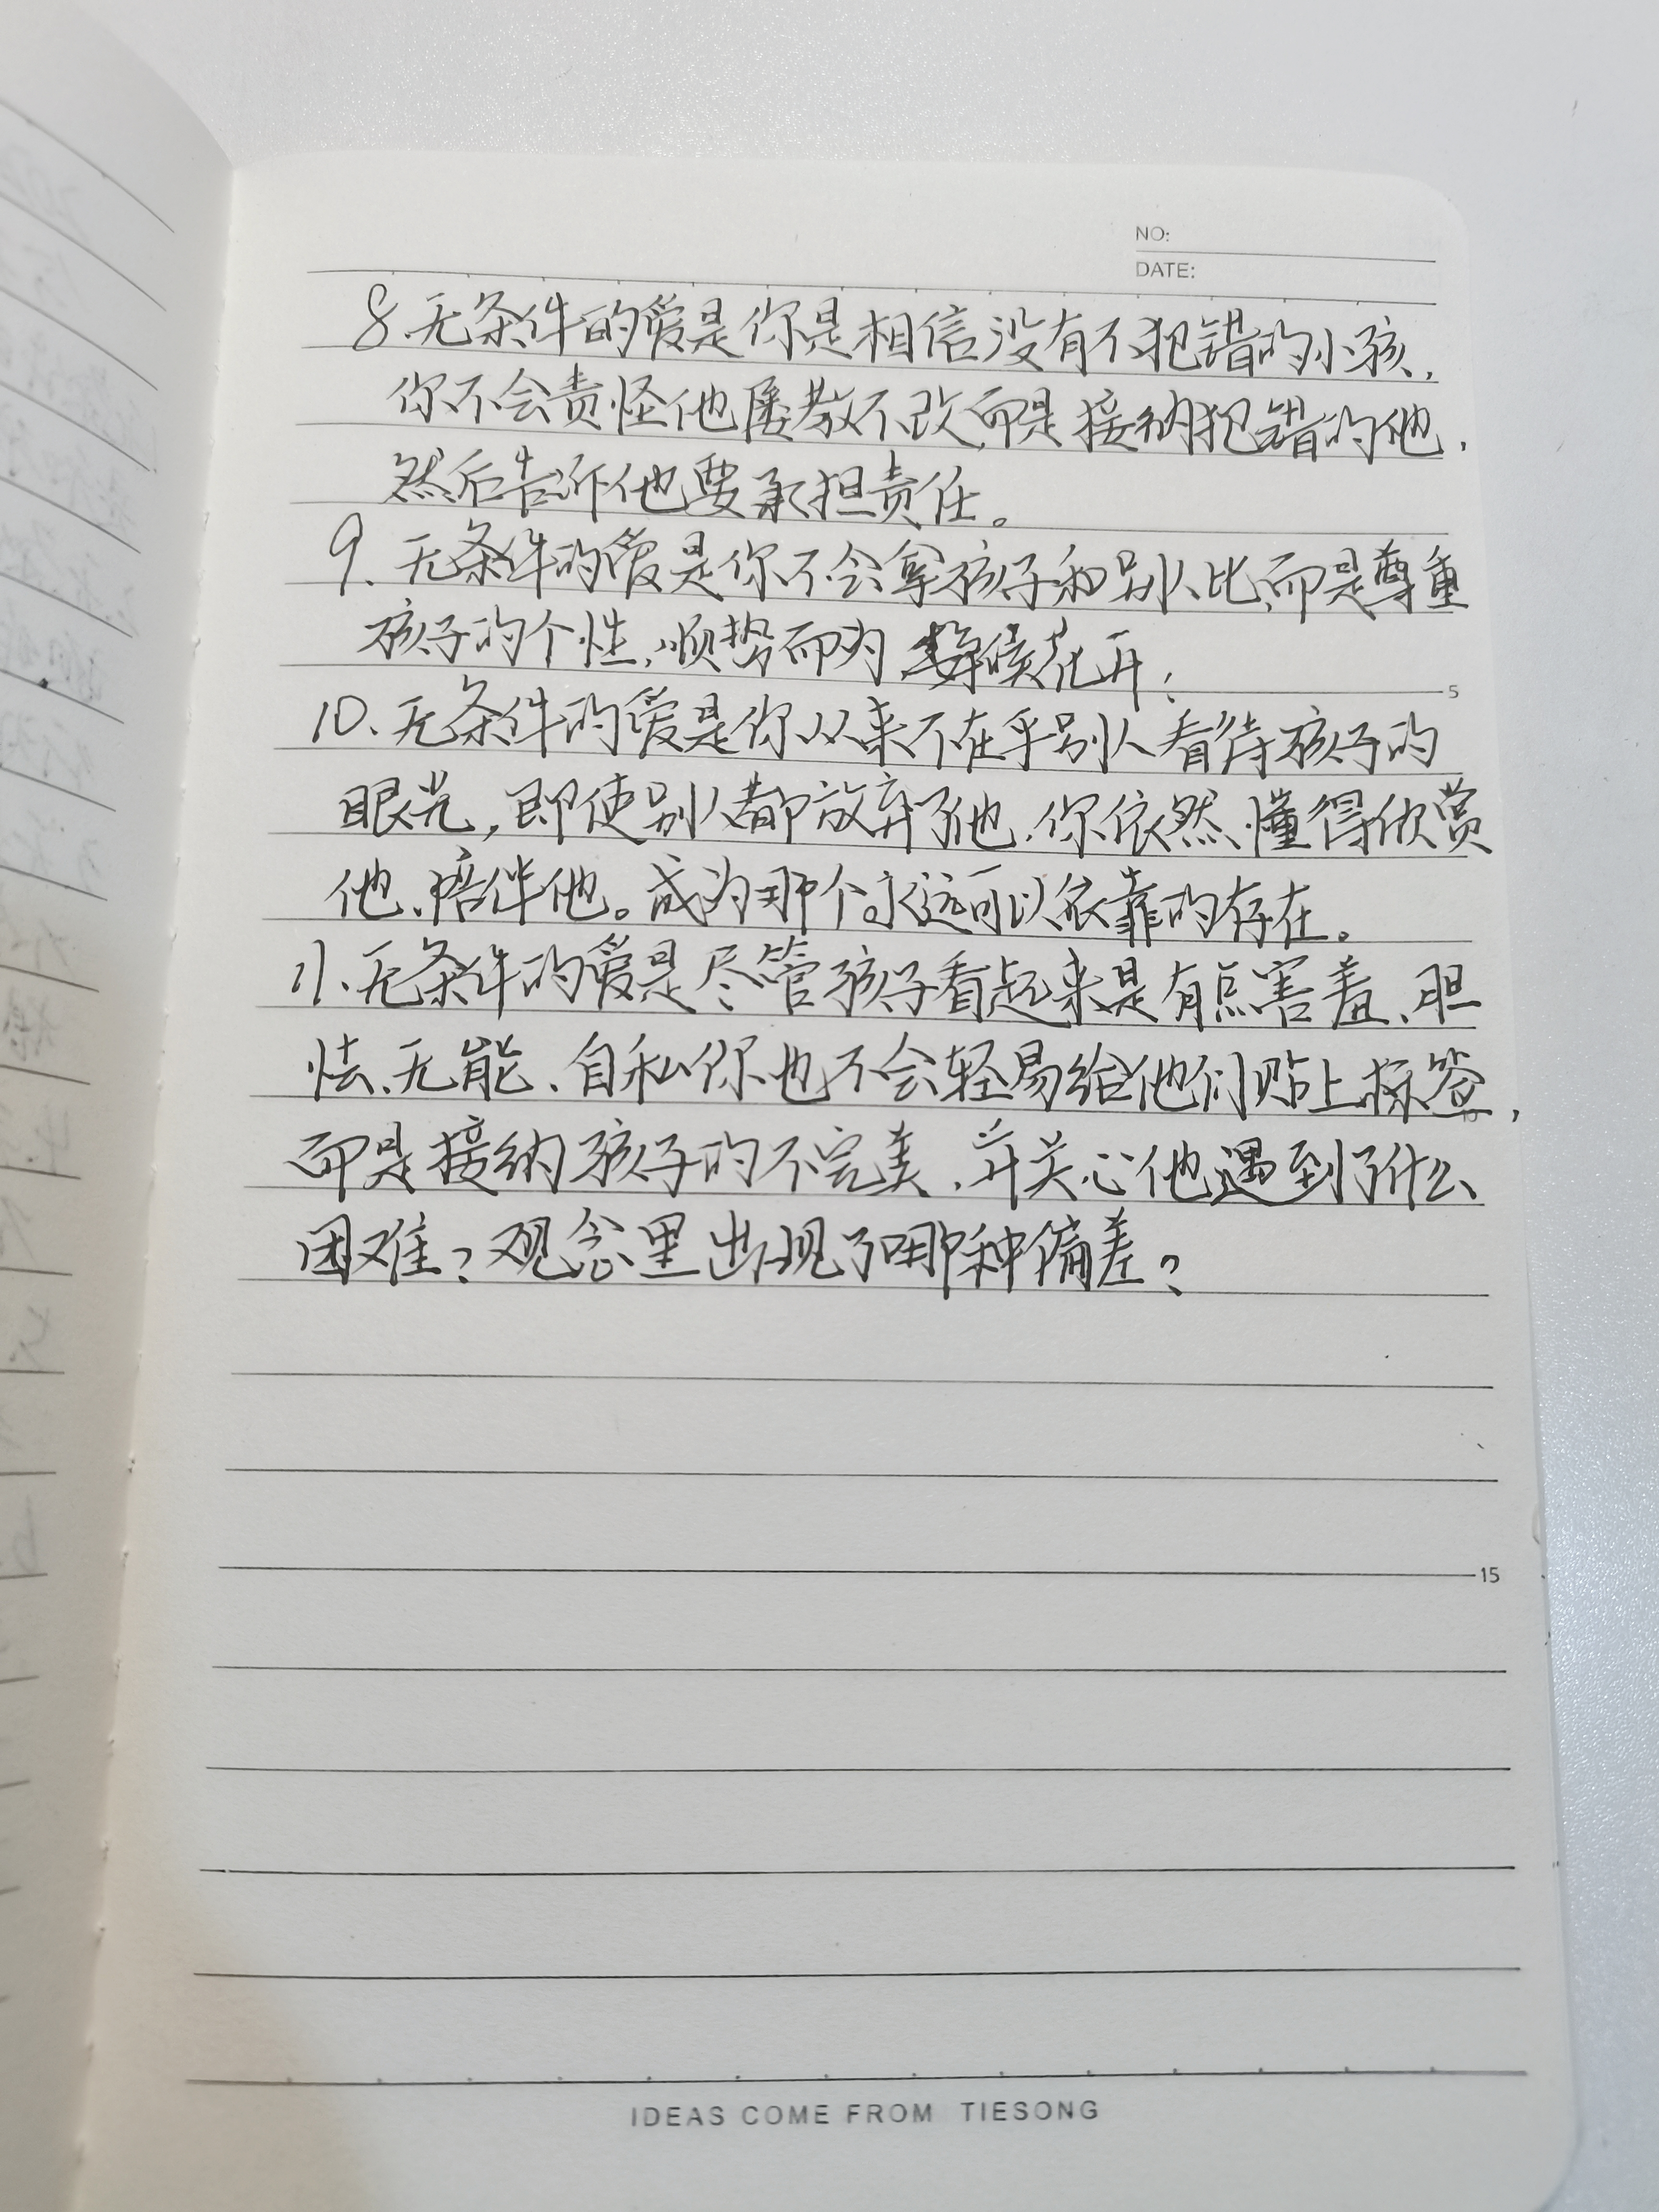 NO:
DATE:
8.无条件的爱是你是相信没有不犯错的小孩,
你不会责怪他屡教不改,而是接纳犯错的他,
然后告诉他要承担责任。
9.无条件的爱是你不会拿孩子和别人比,而是尊重
孩子的个性,顺势而为 等候花开;
5
10、无条件的爱是你从来不在乎别人看待孩子的
眼光,即使别人都放弃了他,你依然懂得欣赏
他、陪伴他。成为那个永远可以依靠的存在。
11、无条件的爱是尽管孩子看起来是有点害羞、胆
怯、无能、自私你也不会轻易给他们贴上标签,
10
而是接纳孩子的不完美,并关心他遇到了什么
困难?观念里出现了哪种偏差?
15
IDEAS COME FROM TIESONG